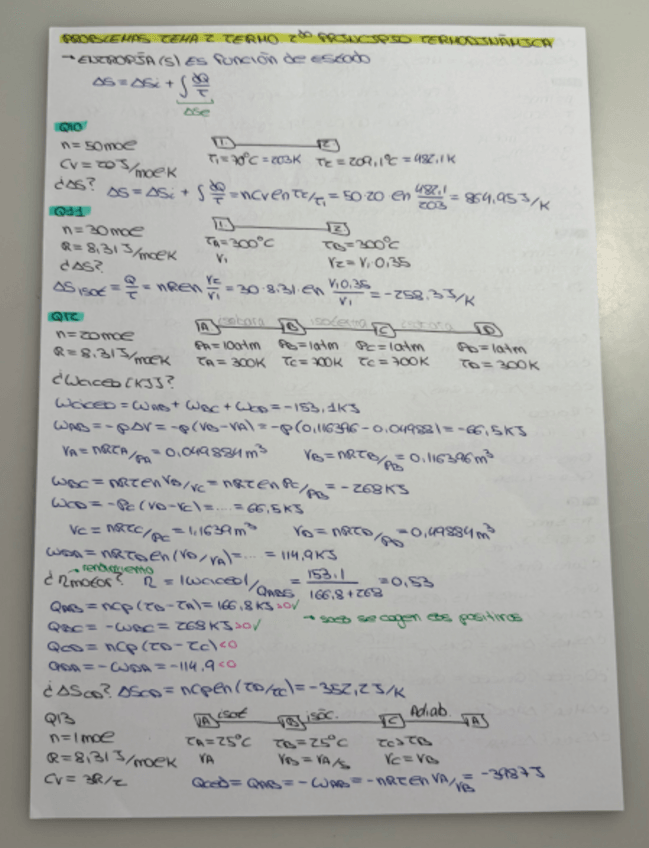 PROBLEMAS TEMA 2 TERMO 2do PRINCIPIO TERMODINÁMICA
→ ENTROPÍA (S) ES función de estado
ΔS = ΔSi + ∫ dQ/T
ΔSe
Q10
n = 50 mol
Cv = 20 J/mol K
¿ΔS?
1 2
T1 = 70°C = 203K T2 = 209,1°C = 482,1K
ΔS = ΔSi + ∫ dQ/T = nCv ln T2/T1 = 50·20 ln 482,1/203 = 864,95 J/K
Q11
n = 30 mol
R = 8,31 J/mol K
¿ΔS?
1 2
TA = 300°C TB = 300°C
V1 V2 = V1·0,35
ΔS isot = Q/T = nR ln V2/V1 = 30·8,31·ln V1·0,35/V1 = -258,3 J/K
Q12
n = 20 mol
R = 8,31 J/mol K
A isobara B isoterma C isobara D
PA = 10atm PB = 1atm PC = 1atm PD = 1atm
TA = 300K TC = 700K TC = 700K TD = 300K
¿Wciclo (KJ)?
Wciclo = WAB + WBC + WCD = -153,1KJ
WAB = -PΔV = -P(VB-VA) = -P(0,116396 - 0,04988) = -66,5KJ
VA = nRTA/PA = 0,049884 m³ VB = nRTB/PB = 0,116396 m³
WBC = nRT ln VB/VC = nRT ln PC/PB = -268KJ
WCD = -PC (VD-VC) = .... = 66,5KJ
VC = nRTC/PC = 1,1639 m³ VD = nRTD/PD = 0,49884 m³
WDA = nRTD ln (VD/VA) = ... = 114,9KJ
→ rendimiento
¿ηmotor? η = |Wciclo|/QABS = 153,1/166,8+268 = 0,53
QAB = nCp (TB - TA) = 166,8 KJ >0✓
QBC = -WBC = 268 KJ >0✓ → solo se cogen los positivos
QCD = nCp (TD - TC) <0
QDA = -WDA = -114,9 <0
¿ΔSCD? ΔSCD = nCp ln (TD/TC) = -352,2 J/K
Q13
n = 1 mol
R = 8,31 J/mol K
Cv = 3R/2
A isot B isóc. C Adiab. A
TA = 25°C TB = 25°C TC>TB
VA VB = VA/5 VC = VB
Qced = QAB = -WAB = -nRT ln VA/VB = -3987 J